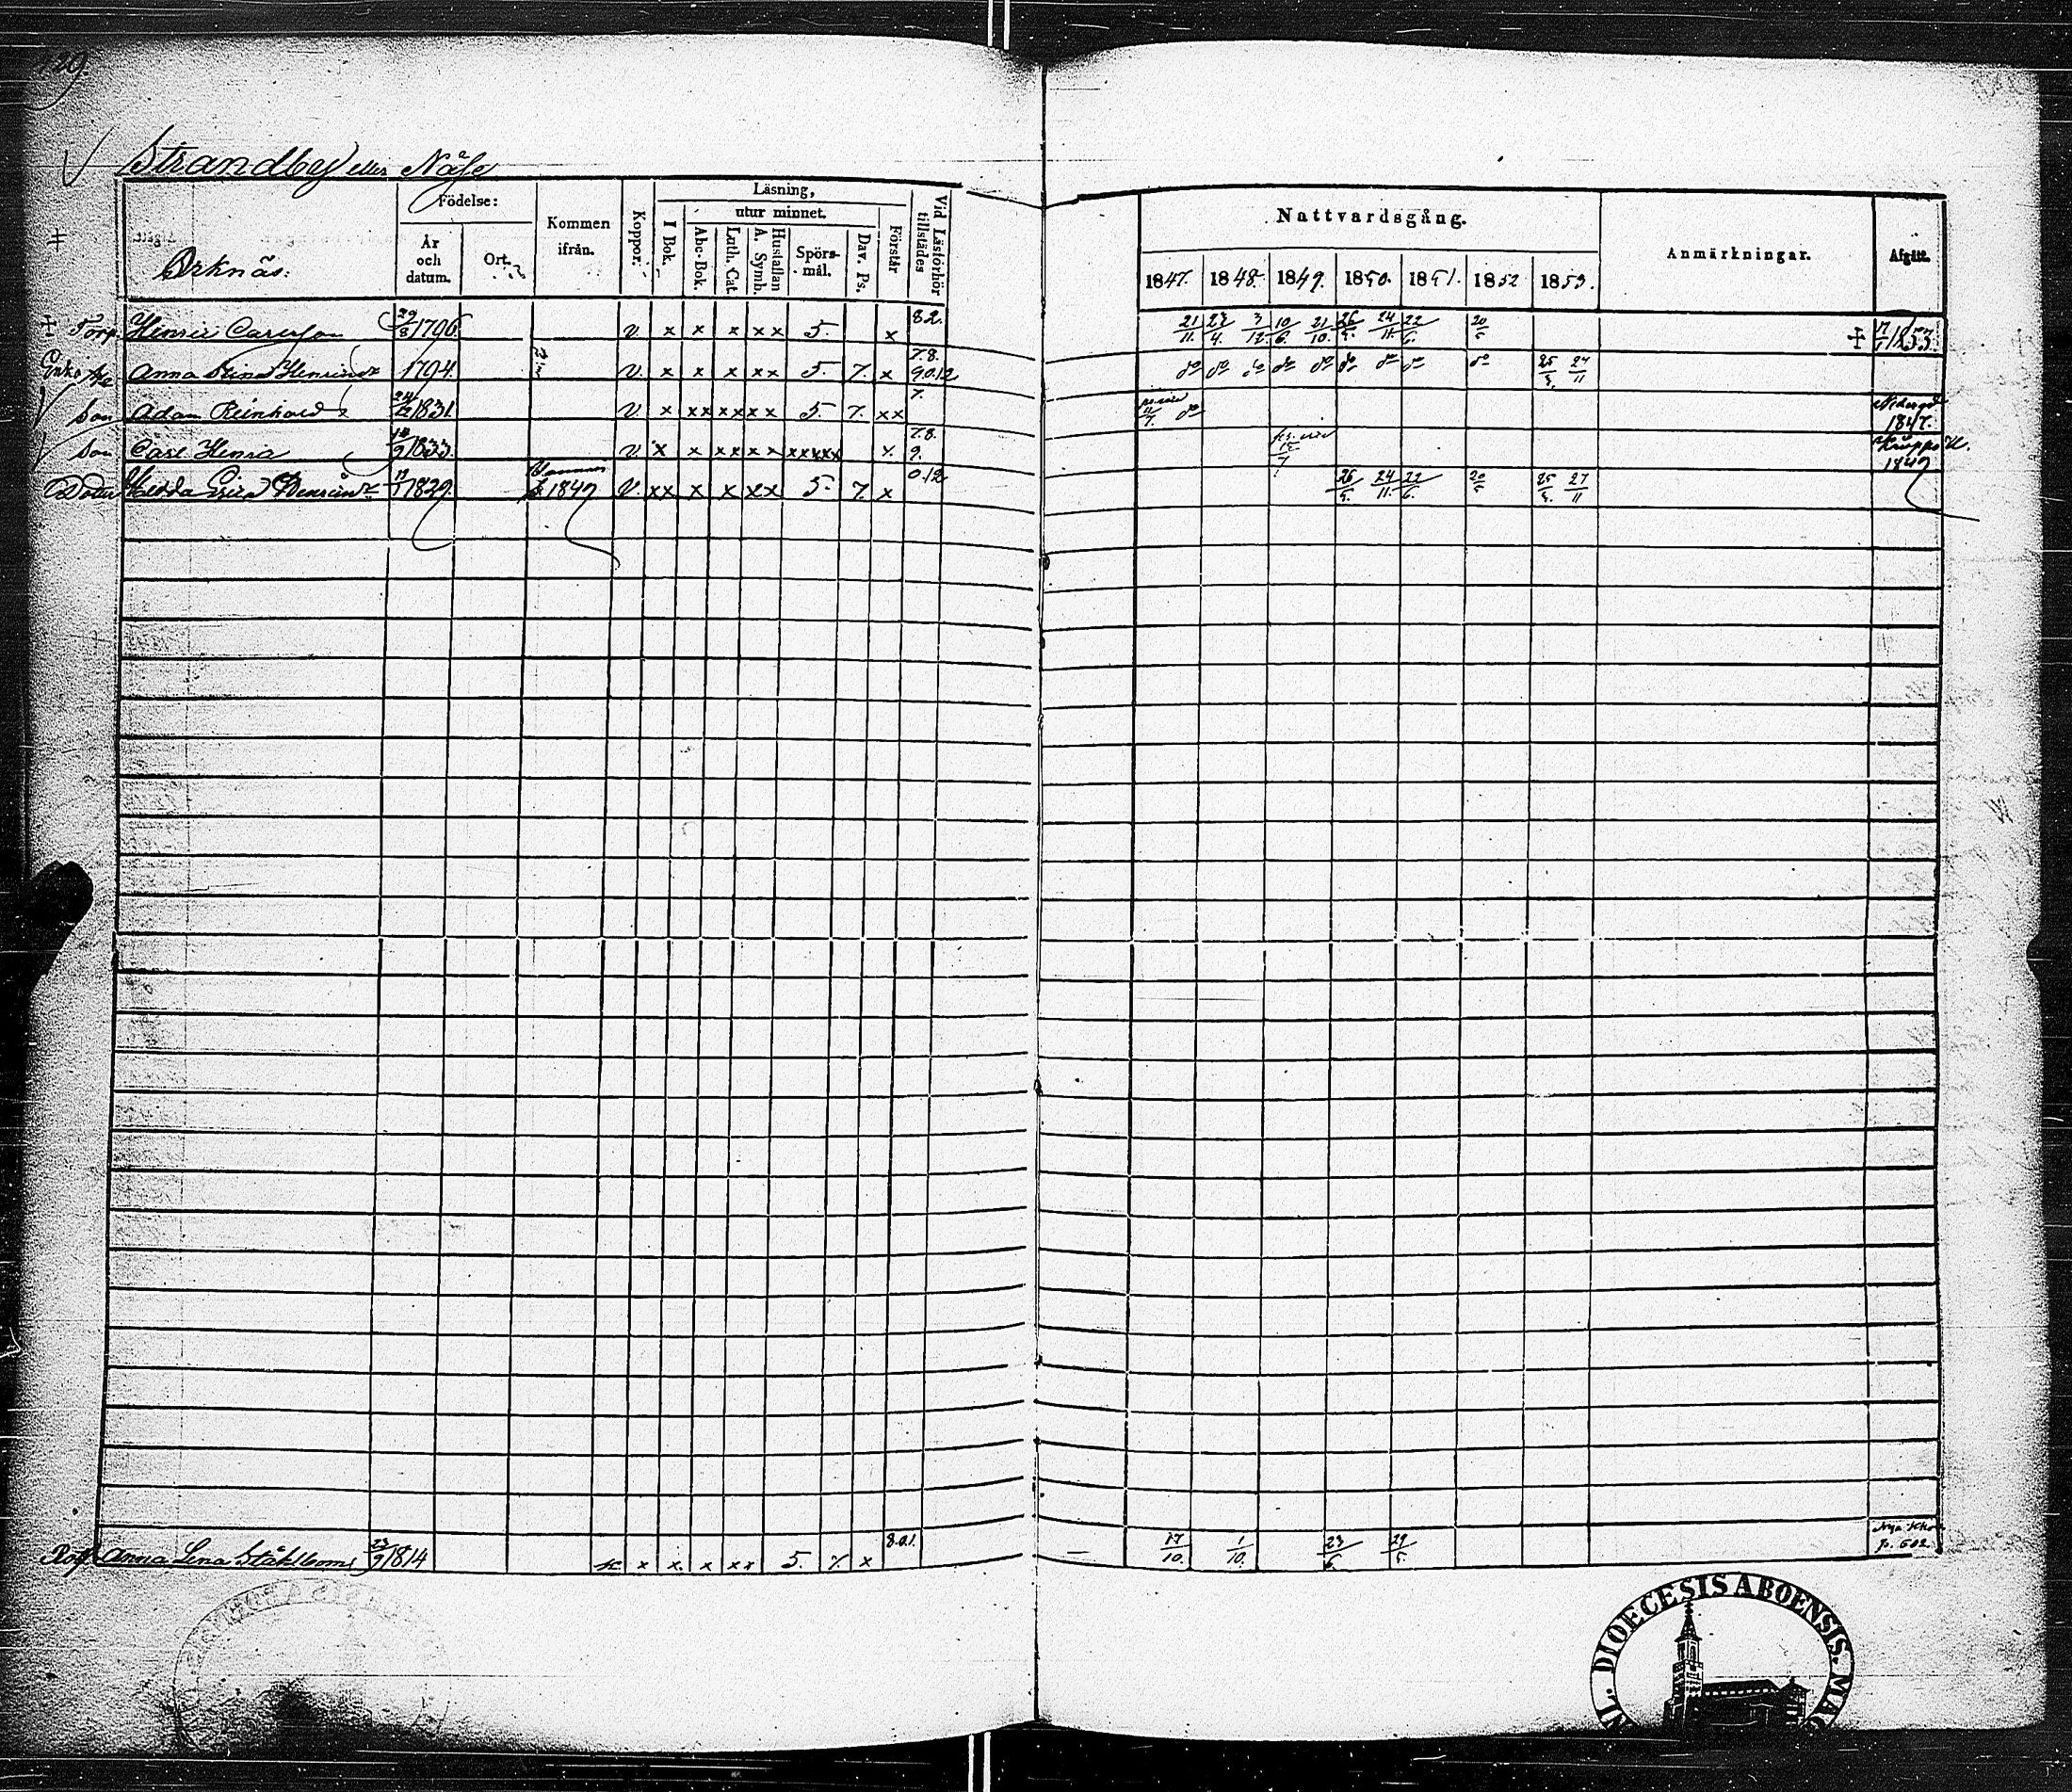 Strandby eller Näse
Orknäs:
Födelse:
År och datum.
Ort.
Kommen ifrån.
Koppor.
Läsning,
utur minnet.
I Bok.
Abc-Bok.
Luth. Cat.
Hustaflan A. Symb.
Spörs-mål.
Dav. Ps.
Förstår
Vid Läsförhör tillstädes
Nattvardsgång.
1847. 1848. 1849. 1850. 1851. 1852 1853.
Anmärkningar.
Afgått.
+ Torp. Henric Carlsson 29/8 1796 v. x x x x x 5. x 8.2. 21/11. 23/4. 3/12. 10/6. 21/10. 26/5. 24/11. 22/6. 20/6 + 17/1 1853.
Enka Anna Stina Henrics 1794. v. x x x x x 5. 7. x 7.8. 9.0.1.2 do do do do do do do do do 25/9. 27/11
Son Adam Reinhard 24/12 1831. v. x x x x x x x 5. 7. x x 7. 11/7. do 1847.
Son Carl Henric 9 1833. v. x x x x x x x x x x x x. 7.8. 9. 15/7 1849
Dotter Hedda Lisa Henrics 17/1 1829. 1849 v. x x x x x x 5. 7. x 0.1.2 26/5. 24/11. 22/6. 20/6 25/9. 27/11
Rotf. Anna Lena Ståhlbom 23/9 1814 x x x. x x x 5. 7. x 8.0.1. 17/10. 1/10. 23/6. 29/5. Nya Kb p. 502
DIOECESIS ABOENSIS. MAG